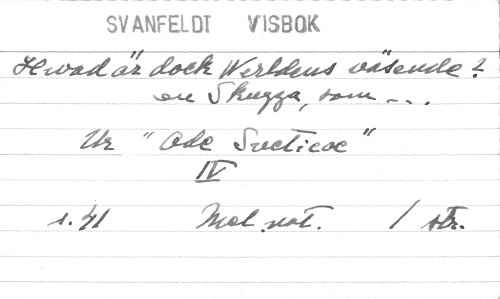 SVANFELDT VISBOK
Hwad är dock Werldens väsende?
en Skugga, som ...
Ur "Odae Sveticae"
IV
s. 41 Mel. not. 1 str.